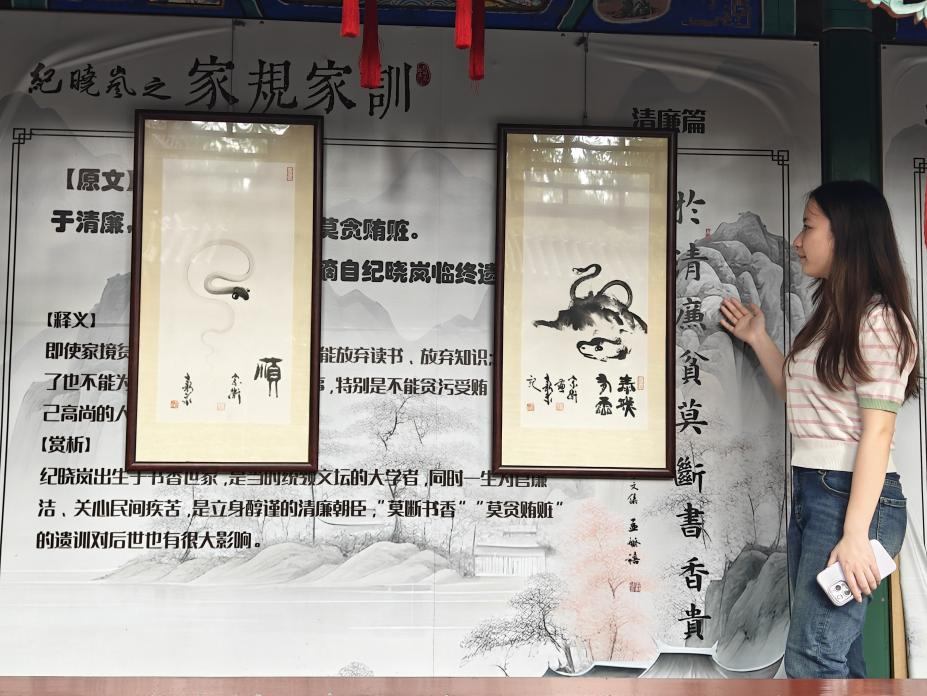 纪晓岚之家規家訓
清廉篇
【原文】
于清廉,
莫贪贿赃。
摘自纪晓岚临终遗
【释义】
即使家境贫
能放弃读书、放弃知识;
了也不能为
事,特别是不能贪污受贿
己高尚的人
【赏析】
纪晓岚出生于书香世家,是当时统领文坛的大学者,同时一生为官廉
洁、关心民间疾苦,是立身醇谨的清廉朝臣,“莫断书香”“莫贪贿赃”
的遗训对后世也有很大影响。
順
於清廉貧莫斷書香貴
文集